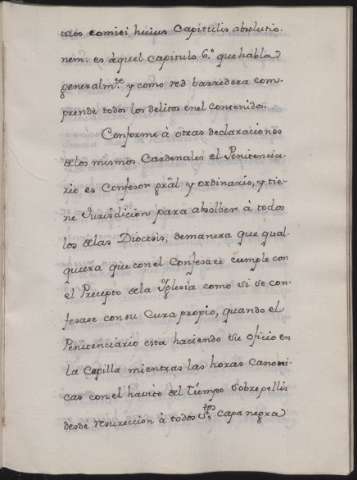 comici huius Capituli absolutio.
nem: es àquel Capitulo 6.º que habla
generalm.te y como red barredera com-
prende todos los delitos enel contenidos.
Conforme à otras declaraciones
delos mismos Cardenales el Penitencia-
rio es Confesor gràl y ordinario, y tie-
ne Jurisdicion para absolver à todos
los delas Diocesis, demanera que qual-
quiera que conel Confesare cumple con
el Precepto dela Yglesia como si se con-
fesare con su Cura propio, quando el
Penitenciario esta haciendo su oficio en
la Capilla mientras las horas Canoni-
cas con el havito del Tiempo Sobrepelliz
desde Resureccion à todos S.tos Capa negra